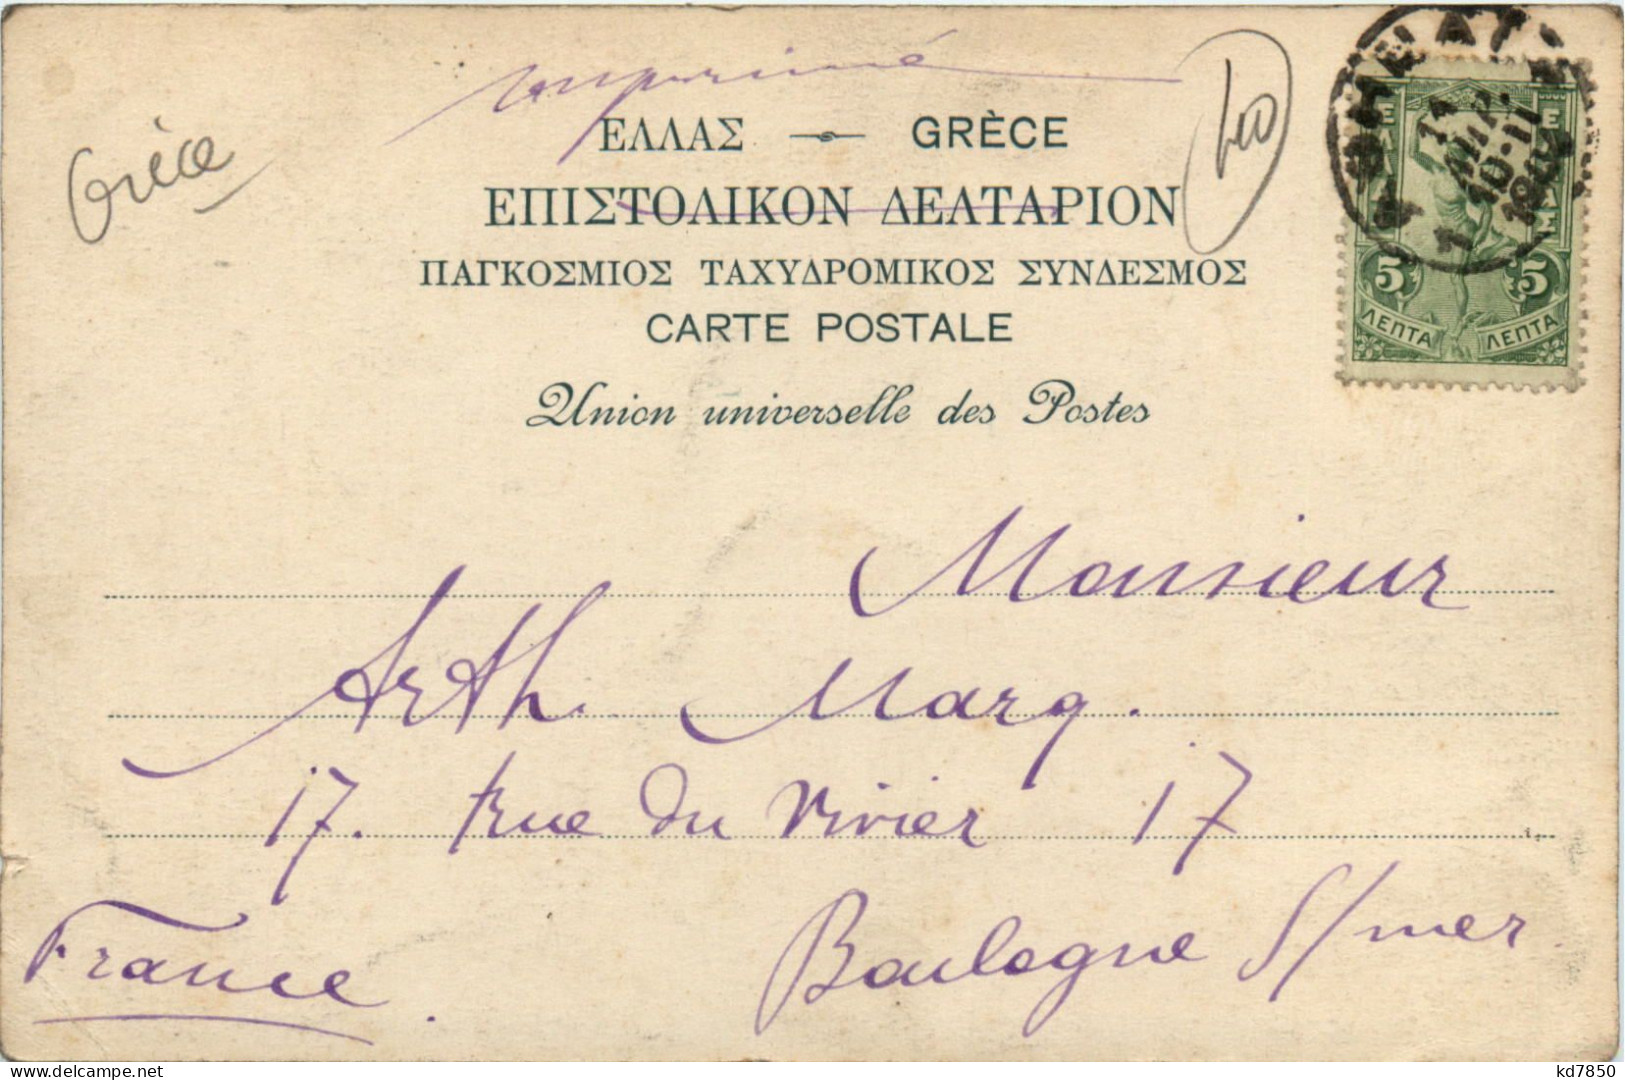 imprimé
ΕΛΛΑΣ — GRÈCE
Grèce
ΕΠΙΣΤΟΛΙΚΟΝ ΔΕΛΤΑΡΙΟΝ
ΠΑΓΚΟΣΜΙΟΣ ΤΑΧΥΔΡΟΜΙΚΟΣ ΣΥΝΔΕΣΜΟΣ
CARTE POSTALE
Union universelle des Postes
ΕΛΛΑΣ
5 5
ΛΕΠΤΑ ΛΕΠΤΑ
Monsieur
Arth. Marq.
17. rue du Vivier 17
Boulogne s/mer
France.
kd7850